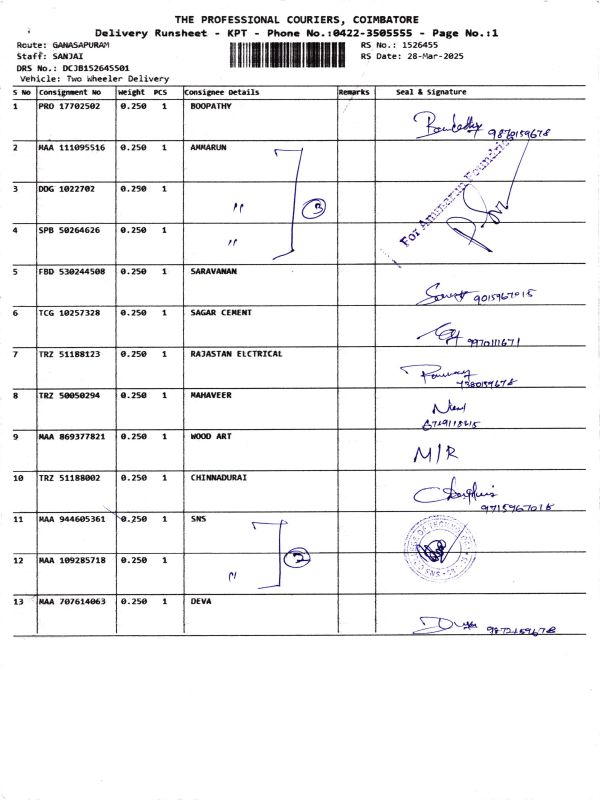 THE PROFESSIONAL COURIERS, COIMBATORE
Delivery Runsheet - KPT - Phone No.:0422-3505555 - Page No.:1
Route: GANASAPURAM RS No.: 1526455
Staff: SANJAI RS Date: 28-Mar-2025
DRS No.: DCJB152645501
Vehicle: Two Wheeler Delivery
S No Consignment No Weight PCS Consignee Details Remarks Seal & Signature
1 PRO 17702502 0.250 1 BOOPATHY
9870159678
2 MAA 111095516 0.250 1 AMMARUN
For Ammarun Foundries
3 DDG 1022702 0.250 1 " 3
4 SPB 50264626 0.250 1 "
5 FBD 530244508 0.250 1 SARAVANAN
9015967015
6 TCG 10257328 0.250 1 SAGAR CEMENT
9970111671
7 TRZ 51188123 0.250 1 RAJASTAN ELCTRICAL
7380159678
8 TRZ 50050294 0.250 1 MAHAVEER
9 MAA 869377821 0.250 1 WOOD ART M/R
10 TRZ 51188002 0.250 1 CHINNADURAI
9715967015
11 MAA 944605361 0.250 1 SNS
12 MAA 109285718 0.250 1 " 2
13 MAA 707614063 0.250 1 DEVA